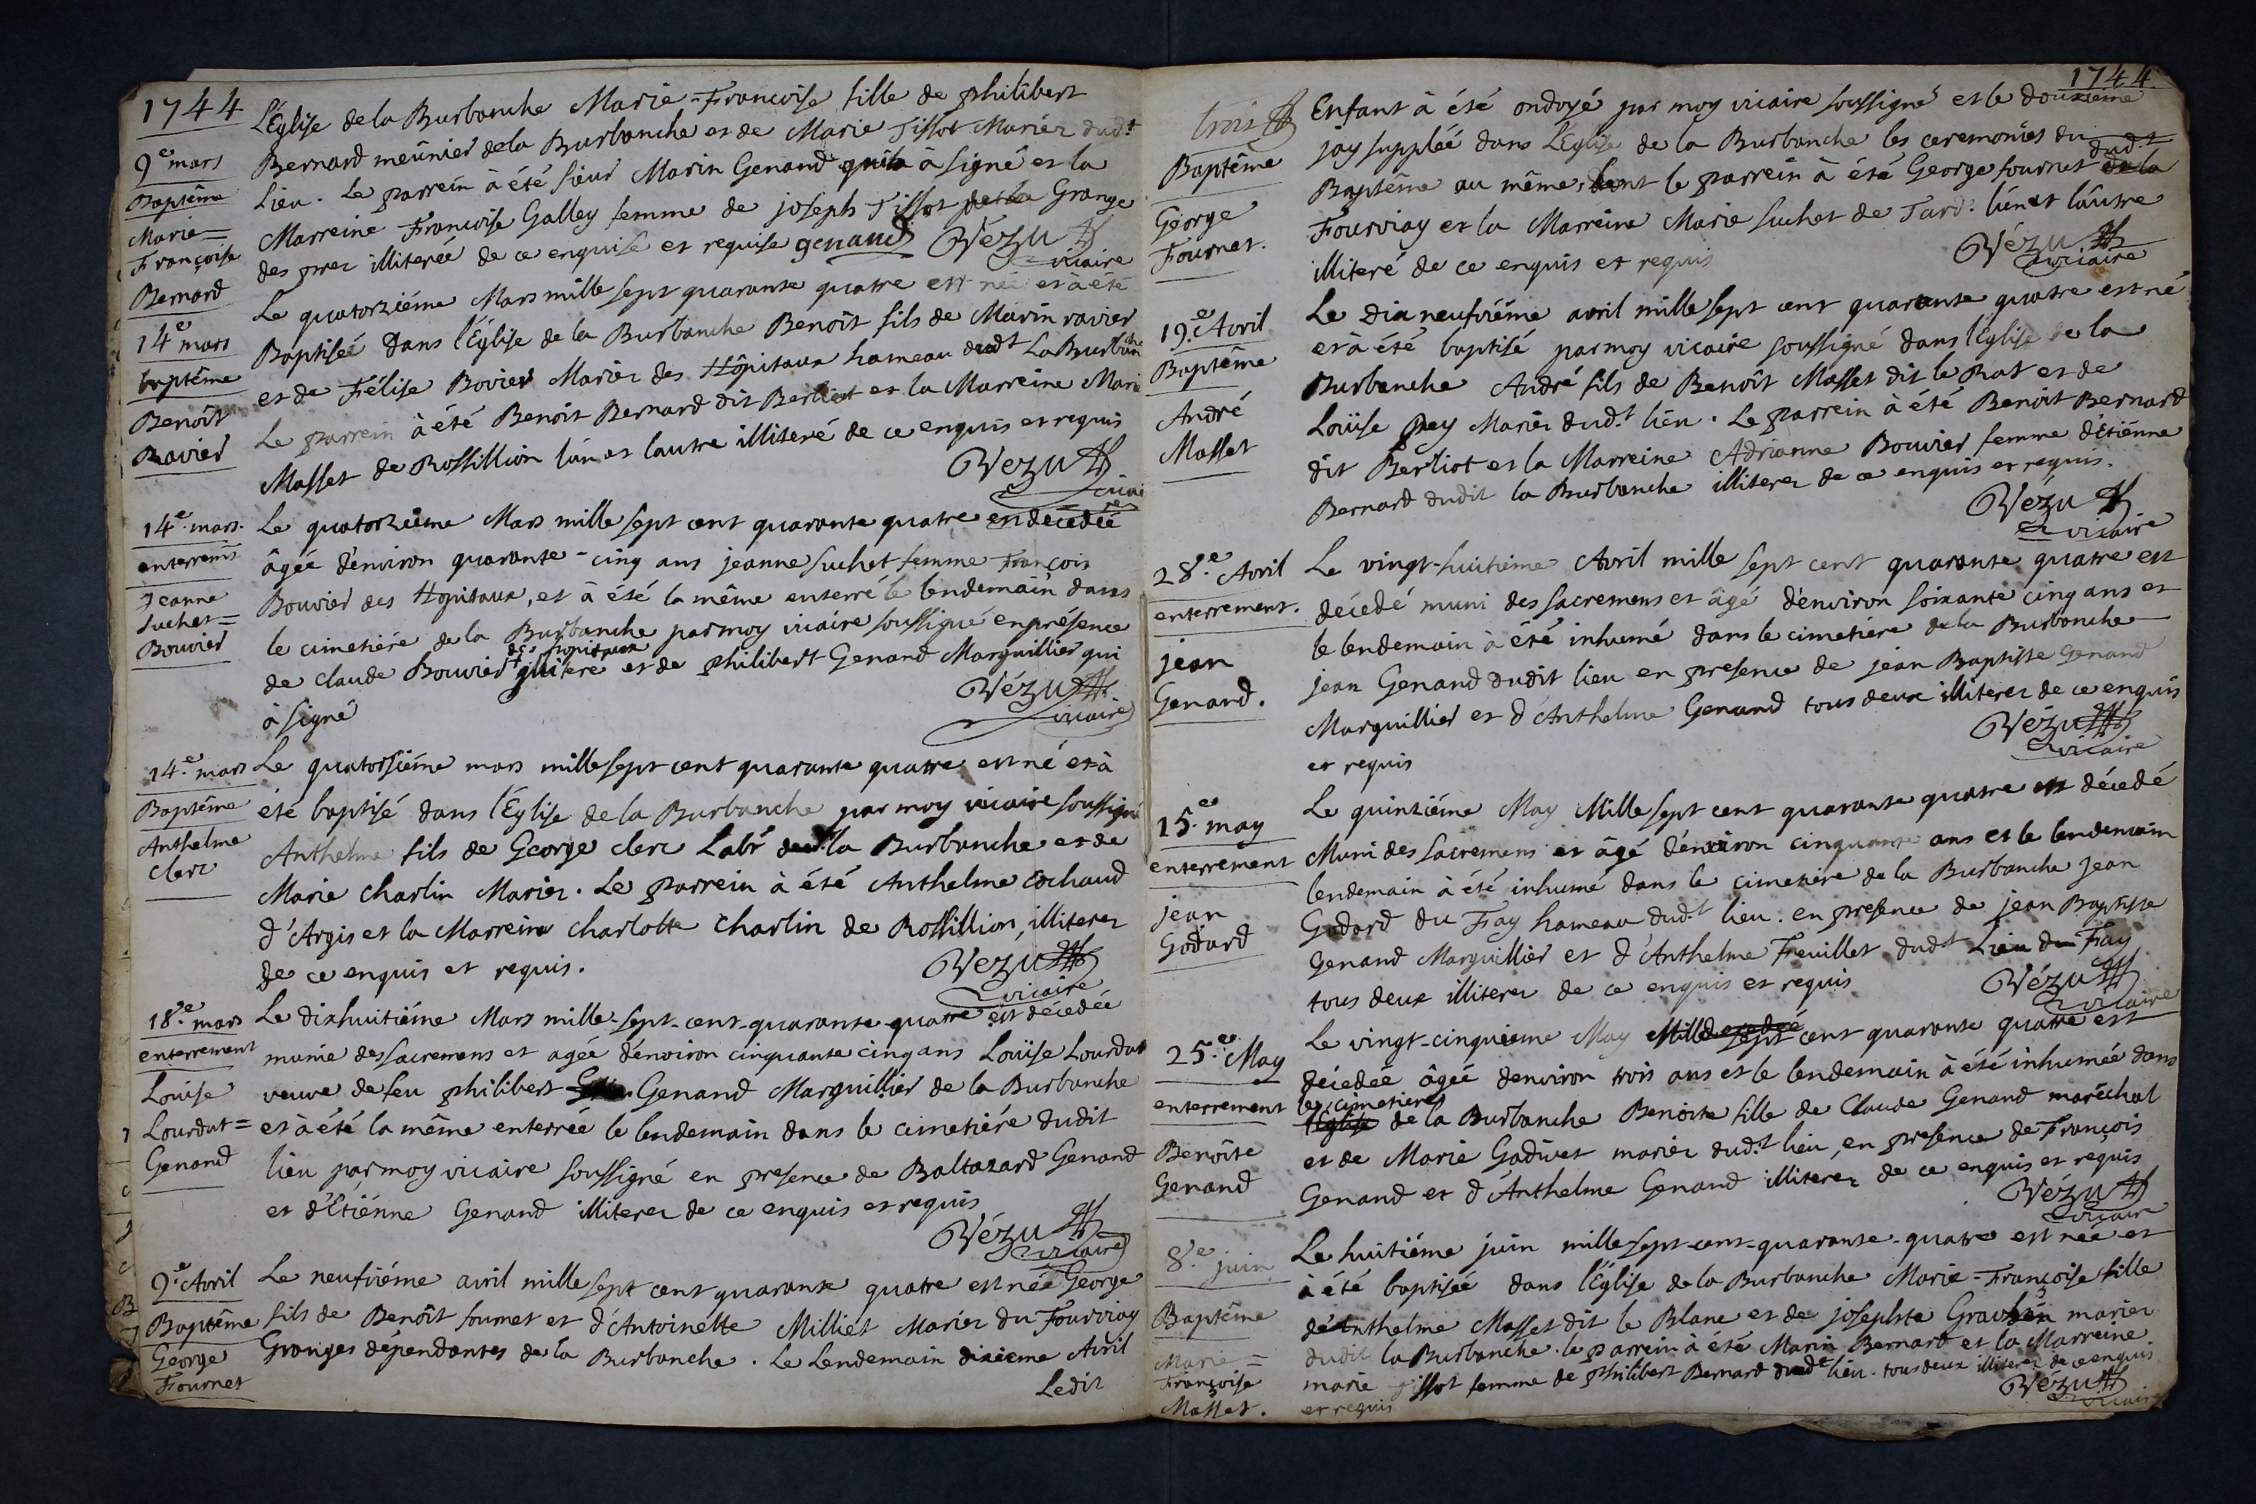 1744
L'Église de la Burbanche Marie=Francoise fille de philibert
9e mars
Bernard meûnier de la Burbanche et de Marie Tissot Mariéz dud.t
Baptême
Lieu. Le parrein à été sieur Marin Genand qui à signé et la
Marie=
Françoise
Marreine Francoise Galley femme de joseph Tissot de la Grange
Bernard
des prez illiterée de ce enquise et requise genand Vézu
vicaire
Le quatorziéme Mars mille sept quarante quatre est né et à été
14e mars
Baptisée dans l'Église de la Burbanche Benoît fils de Marin ravier
baptême
et de Félise Bovier Mariéz des Hôpitaux hameau dud.t La Burbanche
Benoît
Ravier
Le parrein à été Benoît Bernard dit Berliot et la Marreine Marie
Masset de Rossillion lún et lautre illiteré de ce enquis et requis
Vezu
vicaire
14e mars.
Le quatorziéme Mars mille sept cent quarante quatre en décedée
enterremt
âgée d'environ quarante-cinq ans jeanne suchet femme François
Jeanne
Suchet=
Bouvier des Hopitaux, et à été la même enterré le lendemain dans
Bouvier
le cimetiére de la Burbanche par moy vicaire soussigné en présence
des hopitaux
de claude Bouvier illiteré et de philibert Genand Marguillier qui
à signé
Vézu
vicaire
14.e mars
Le quatorsiéme mars mille sept cent quarante quatre est né et à
Baptême
été baptisé dans l'Église de la Burbanche par moy vicaire soussigné
Anthelme
Clerc
Anthelme fils de George clerc Labr de la Burbanche et de
Marie charlin Mariéz. Le parrein à été Anthelme Cochaud
d'Argis et la Marreine charlotte charlin de Rossillion, illiterez
de ce enquis et requis.
Vezu
vicaire
18.e mars
Le dixhuitiéme Mars mille-sept-cent-quarante-quatre est décedée
enterrement
munie des sacremens et agée d'environ cinquante cinq ans Loüise Lourdat
Loüise
veuve de feu philibert Genand Marguillier de la Burbanche
Lourdat=
et à été la même enterrée le lendemain dans le cimetiére dudit
Genand
lieu par moy vicaire soussigné en presence de Baltazard Genand
et d'Etiénne Genand illiterez de ce enquis et requis
Vézu
vicaire
9.e Avril
Le neufiéme avril mille sept cent quarante quatre est née George
Baptême
fils de Benoît fournet et d'Antoinette Milliet Mariéz du Fourviay
George
Fournet
Granges dépendantes de la Burbanche. Le Lendemain dixieme Avril
Ledit
1744
trois
Enfant à été ondoyé par moy vicaire soussigné et le douzieme
jay suppléé dans L'Eglise de la Burbanche les ceremonies du
Baptême
Baptême au même, dont le parrein à été George fournet dud.t de la
George
Fournet.
Fourviay et la Marreine Marie Suchet de Tard. lún et lâutre
illiteré de ce enquis et requis
Vézu
vicaire
19.e Avril
Le dix neufiéme avril mille sept cent quarante quatre est né
et à été baptisé par moy vicaire soussigné dans l'Eglise de la
Baptême
Burbanche André fils de Benoît Masset dit le Rat et de
André
Masset
Loüise Pey Mariéz dud.t lieu. Le parrein à été Benoit Bernard
dit Berliot et la Marreine Adrianne Bouvier femme d'Étiénne
Bernard dudit la Burbanche illiterez de ce enquis et requis.
Vézu
vicaire
28.e Avril
Le vingt-huitième Avril mille sept cent quarante quatre est
enterrement.
décedé muni des sacremens et âgé d'environ soixante cinq ans et
le lendemain à été inhumé dans le cimetiére de la Burbanche
jean
Genand.
jean Genand dudit lieu en presence de jean Baptiste Genand
Marguillier et d'Anthelme Genand tous deux illiterez de ce enquis
et requis
Vézu
vicaire
15.e may
Le quinziéme May Mille sept cent quarante quatre est décedé
enterrement
Muni des Sacremens et âgé d'environ cinquante ans et le lendemain
lendemain à été inhumé dans le cimetiére de la Burbanche Jean
jean
Godard
Godard du Fay hameau dud.t lieu. en presence de jean Baptiste
Genand Marguillier et d'Anthelme Freuillet dud.t Lieu du Fay
tous deux illiterez de ce enquis et requis
Vézu
vicaire
25.e May
Le vingt-cinquieme May Mille sept cent quarante quatre est
décedeé âgeé denviron trois ans et le lendemain à été inhumée dans
enterrement
le cimetiere
l'Eglise de la Burbanche Benoite fille de Claude Genand maréchal
Benoite
et de Marie Godivet mariéz dud.t lieu, en presence de François
Genand
Genand et d'Anthelme Genand illiterez de ce enquis et requis
Vézu
vicaire
8.e juin
Le huitiéme juin mille-sept-cent-quarante-quatre est née et
à été baptisée dans l'Église de la Burbanche Marie-Françoise fille
Baptême
d'Anthelme Masset dit le Blanc et de josephte mariéz
Marie=
dudit la Burbanche. le parrein à été Marin Bernard et la Marreine
Françoise
marie Tissot femme de philibert Bernard dud.t lieu. tous deux illiterez de ce enquis
Masset.
et requis
Vézu
vicaire